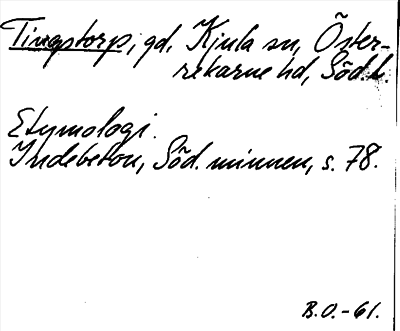 Tingstorp, gd, Kjula sn, Öster-
rekarne hd, Söd.l.
Etymologi.
Indebetou, Söd. minnen, s. 78.
B.O.-61.